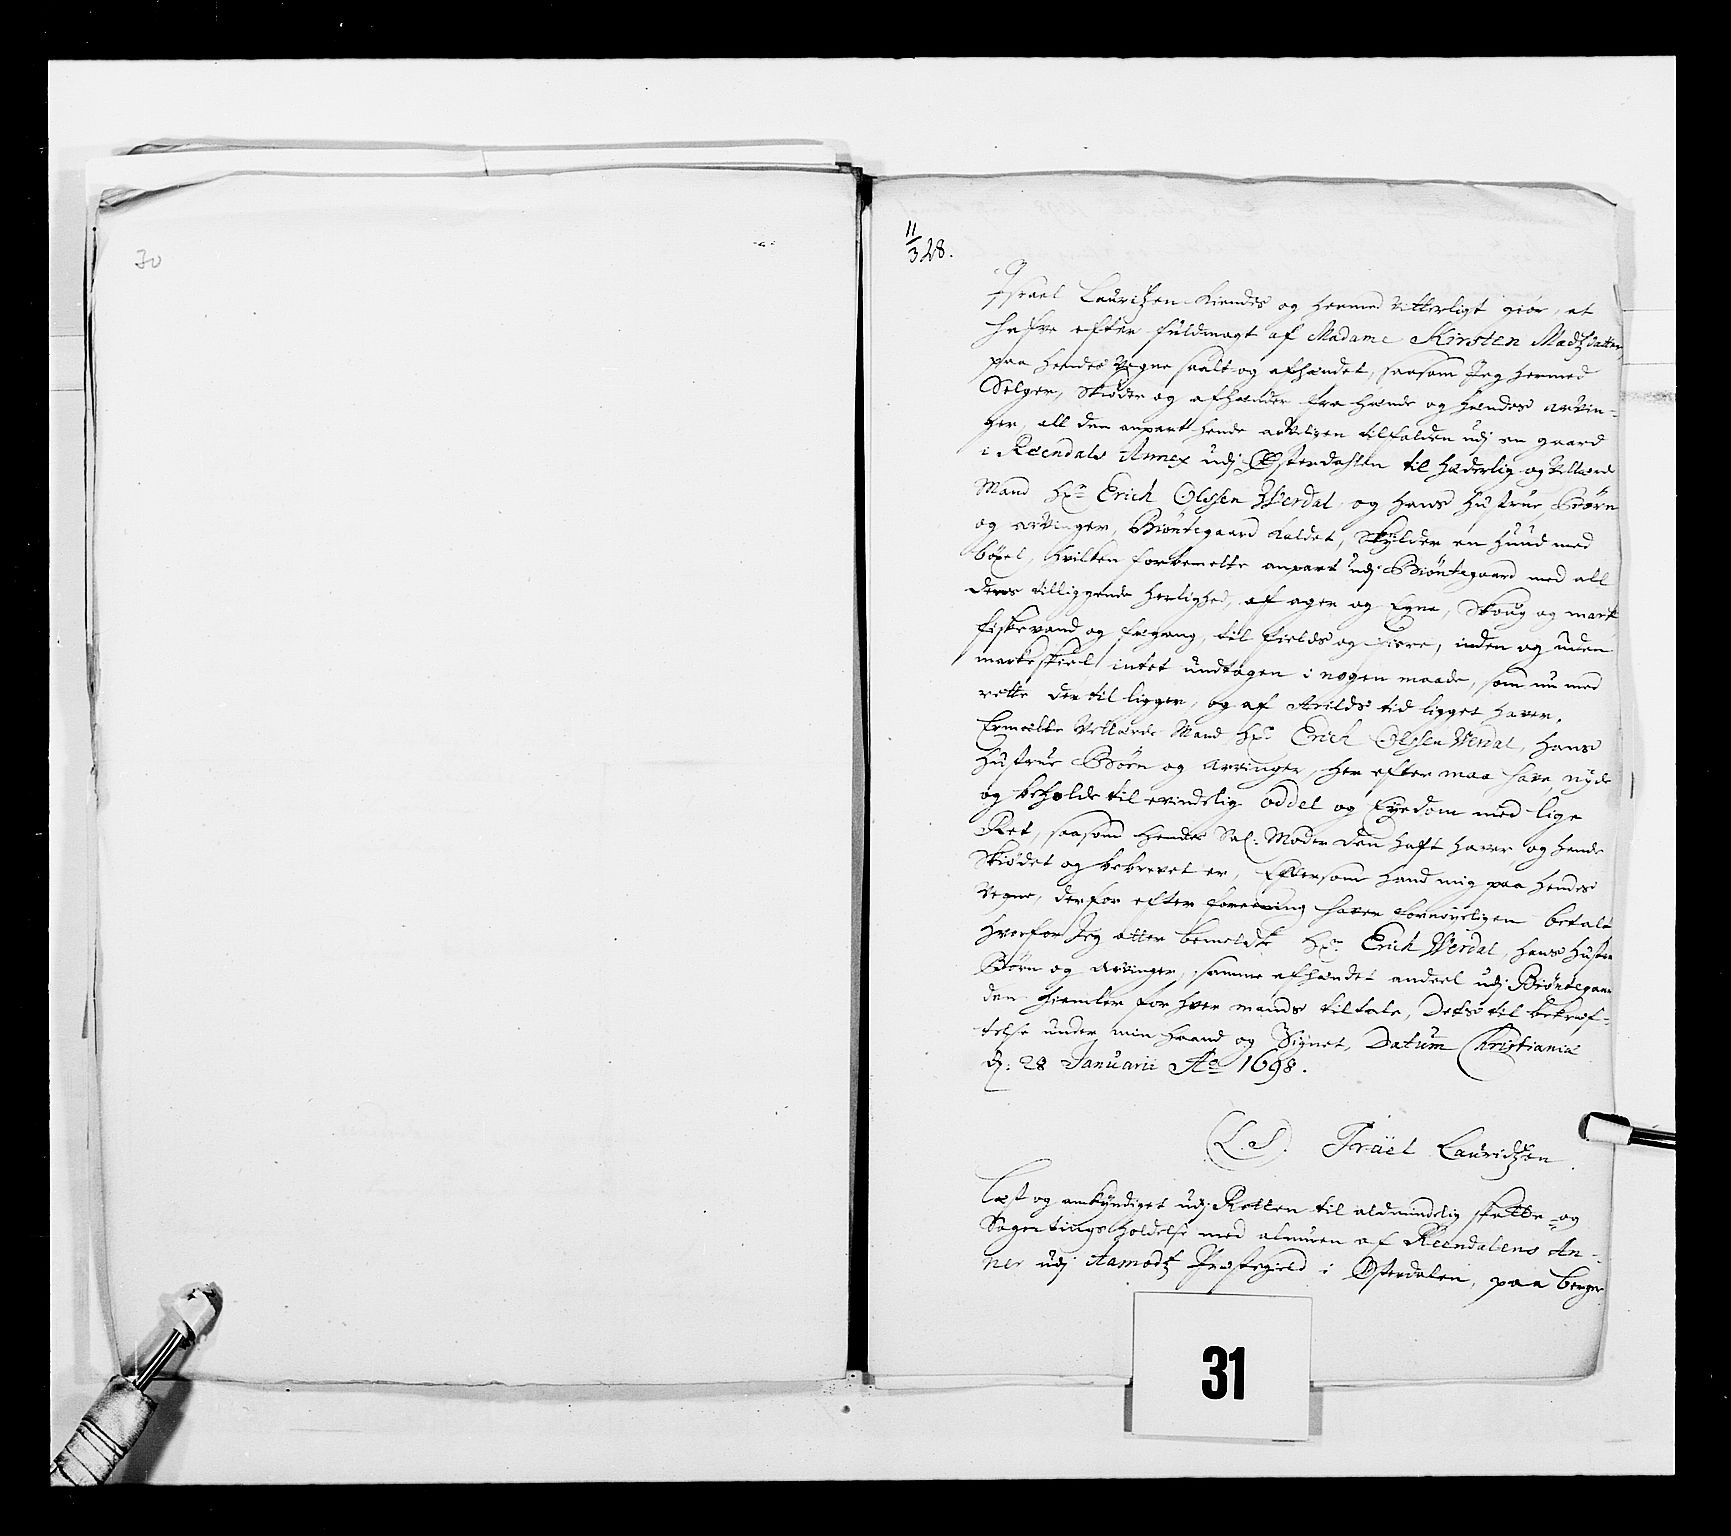 30
11/3 28.
Israel Lauritzen Kiendes og hermed vitterligt giør, at
hafve efter fuldmagt af Madame Kirsten Madtzdatter,
paa hendes Vegne saalt og afhændet, saasom Jeg hermed
Selger, Skiøder og afhænder fra hende og hendes arvin-
ger, all den anpart hende arveligen tilfalden udj en gaard
i Reendals Annex udj Østerdahlen til hæderlig og Vellærd
Mand Hr. Erich Olssen Werdal og hans hustrue, Børn
og arvinger, Biøntegaard kaldet, Skylder en huud med
böxel, hvilken forbemelte anpart udj Biøntegaard med all
deres tilliggende herlighed, af ager og Egne, Skoug og mark
fiskevand og fægang, til fields og fiære, inden og uden
markeskiel, intet undtagen i nogen maade, som nu med
rette der til ligger, og af Arilds tid ligget haver,
Ermelte Vellærde Mand Hr. Erich Olssen Werdal, hans
hustrue Børn og arvinger, her efter maa have, nyde
og beholde til evindelig oddel og Eyedom med lige
Ret, saasom hendes Sal. Moder den haft haver og hende
Skiødet og bebrevet er, Eftersom hand mig paa hendes
Vegne, derfor efter forening haver fornøyeligen betalt
hvorfor Jeg atter bemelte Hr. Erich Werdal, hans hustrue
Børn og Arvinger, samme afhændet andeel udj Biøntegaar
den hiemler for hver mands tiltale, Dets til bekræf-
telse under min haand og Signet, Datum Christiania
d: 28 Januarii Ao 1698.
(L. S.) Israel Lauridtzen.
Læst og ankyndiget udj Retten til aldmindelig skatte- og
Sagetings holdelse med almuen af Reendalens An-
nex udj Aamodtz Præstegield i Østerdalen, paa berger
31